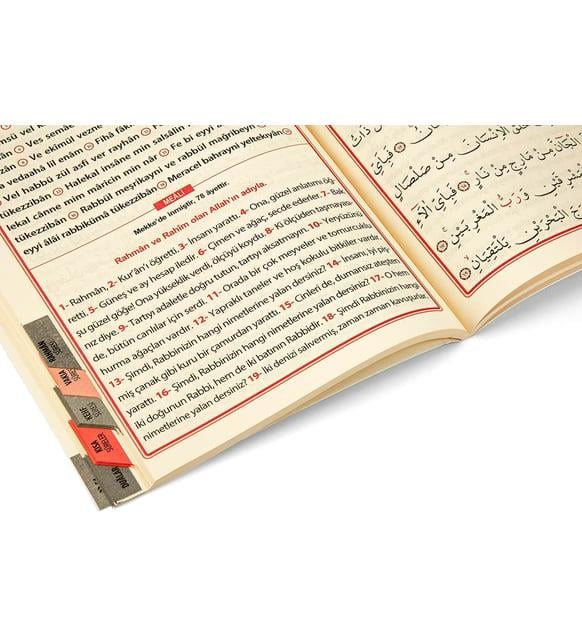 sü vel k
ân Ves semâe
ân Ve ekimül vezne
a vedaahâ lil enâm Fîhâ fâkih
Vel habbü zül asfi ver rayhân
tükezzibân Halekal insâne min salsâlin
lekal cânne min mâricin min nâr Fe bi eyyi
tükezzibân Rabbül meşrikayni ve rabbül mağribeyn
eyyi âlâi rabbikümâ tükezzibân Meracel bahrayni yeltekıyân
MEALİ
Mekke'de inmiştir, 78 âyettir.
Rahmân ve Rahîm olan Allah'ın adıyla.
1- Rahmân, 2- Kur'ân'ı öğretti. 3- İnsanı yarattı. 4- Ona, güzel anlatımı öğ-
retti. 5- Güneş ve ay hesap iledir. 6- Çimen ve ağaç, secde ederler. 7- Bak
şu güzel göğe! Ona yükseklik verdi, ölçüyü koydu. 8- Ki ölçüden taşmayası-
nız diye. 9- Tartıyı adaletle doğru tutun, tartıyı aksatmayın. 10- Yeryüzünü
de, bütün canlılar için serdi. 11- Orada bir çok meyveler ve tomurcuklu
hurma ağaçları vardır. 12- Yapraklı taneler ve hoş kokulu bitkiler vardır.
13- Şimdi, Rabbinizin hangi nimetlerine yalan dersiniz? 14- İnsanı, iyi piş-
miş çanak gibi kuru bir çamurdan yarattı. 15- Cinleri de, dumansız ateşten
yarattı. 16- Şimdi, Rabbinizin hangi nimetlerine yalan dersiniz? 17- O hem
iki doğunun Rabbi, hem de iki batının Rabbidir. 18- Şimdi Rabbinizin hangi
nimetlerine yalan dersiniz? 19- İki denizi salıvermiş, zaman zaman kavuşurlar,
RAHMAN
SÛRESİ
VAKIA
SÛRESİ
KEHF
SÛRESİ
KISA
SÛRELER
DUALAR
فَبِاَيِّ
الْاِنْسَانَ مِنْ صَلْصَالٍ
مِنْ مَارِجٍ مِنْ نَارٍ فَبِاَيِّ اٰلَٓاءِ
وَرَبُّ الْمَغْرِبَيْنِ
الْبَحْرَيْنِ يَلْتَقِيَانِ